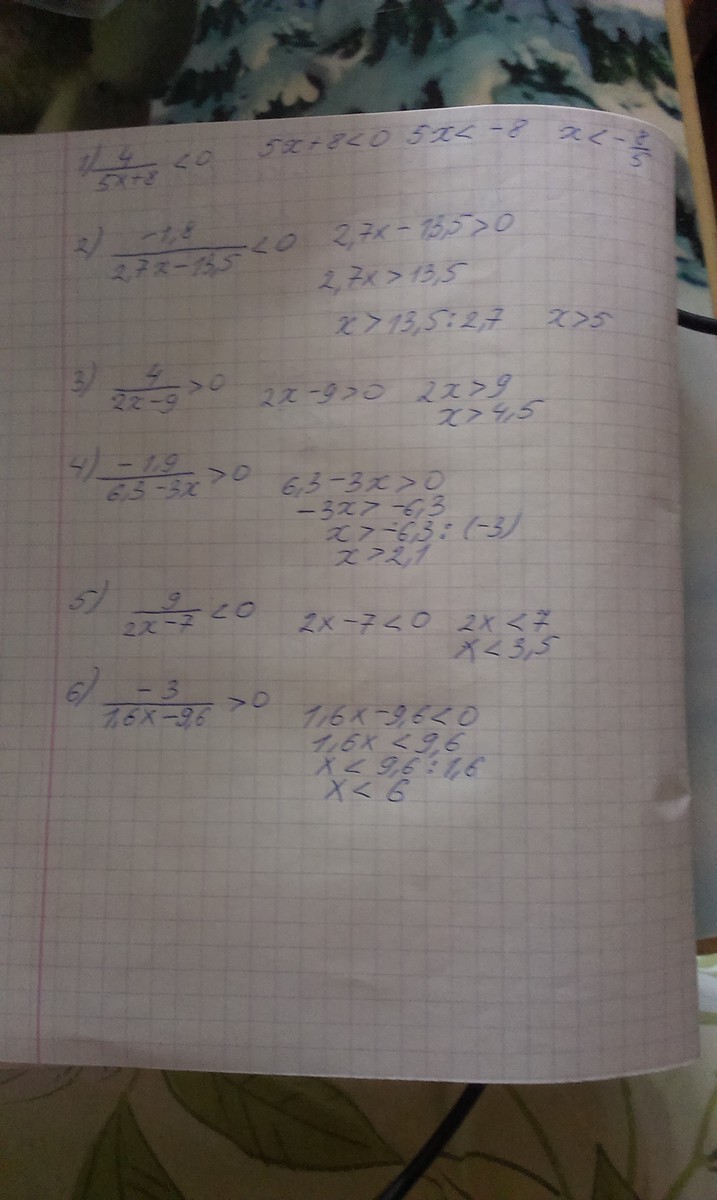 1) 4/(5x+8) < 0   5x+8<0   5x< -8   x < -8/5
2) -1,8/(2,7x-13,5) < 0   2,7x-13,5>0
2,7x>13,5
x>13,5:2,7   x>5
3) 4/(2x-9) > 0   2x-9>0   2x>9
x>4,5
4) -1,9/(6,3-3x) > 0   6,3-3x>0
-3x> -6,3
x> -6,3: (-3)
x>2,1
5) 9/(2x-7) < 0   2x-7<0   2x<7
x<3,5
6) -3/(1,6x-9,6) > 0   1,6x-9,6<0
1,6x<9,6
x< 9,6:1,6
x< 6